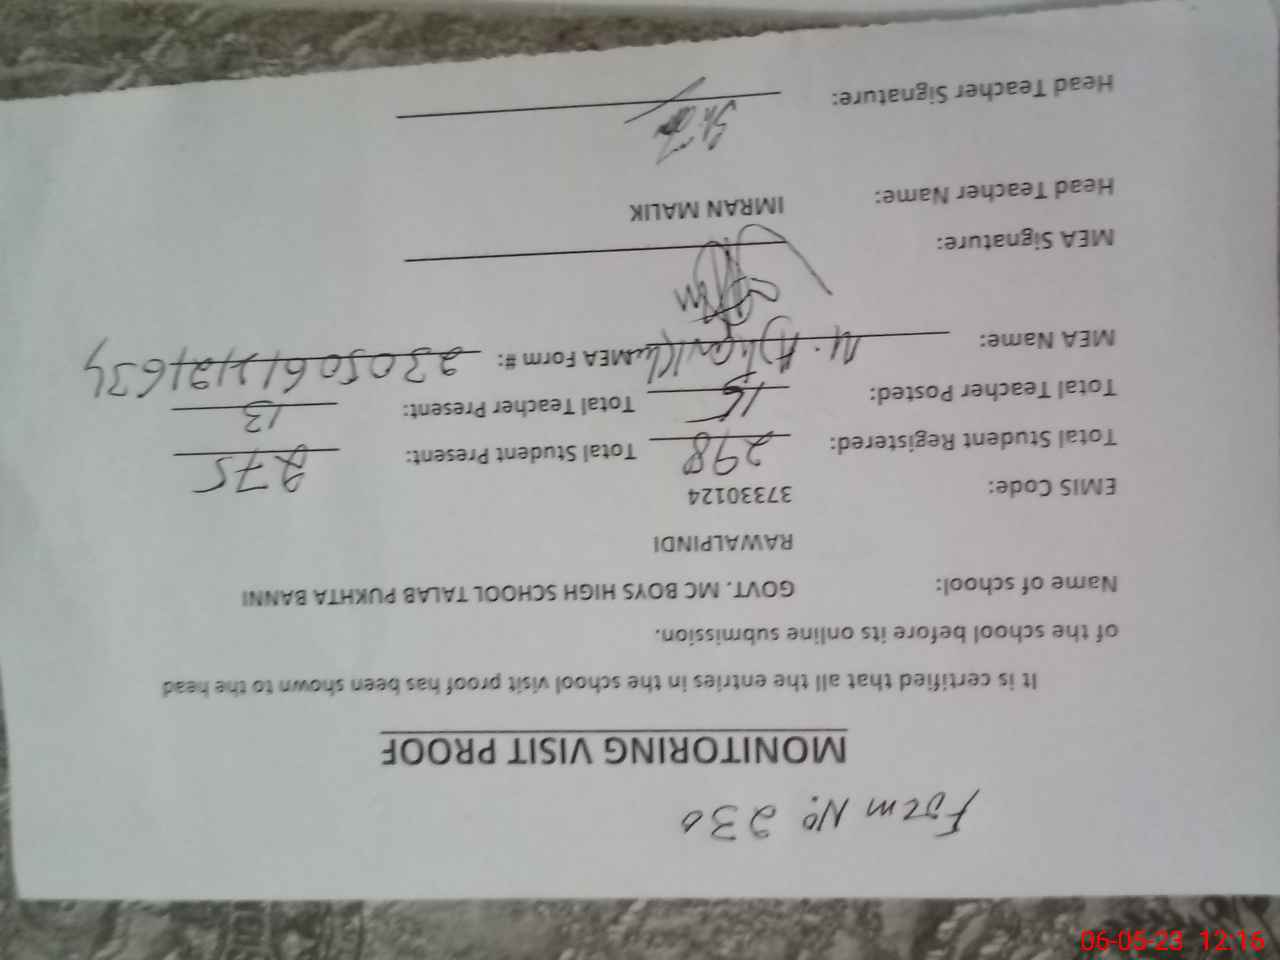 Form No. 230
MONITORING VISIT PROOF
It is certified that all the entries in the school visit proof has been shown to the head
of the school before its online submission.
Name of school: GOVT. MC BOYS HIGH SCHOOL TALAB PUKHTA BANNI
RAWALPINDI
EMIS Code: 37330124
Total Student Registered: 298 Total Student Present: 275
Total Teacher Posted: 15 Total Teacher Present: 13
MEA Name: M. MEA Form #:
MEA Signature:
Head Teacher Name: IMRAN MALIK
Head Teacher Signature:
06-05-23 12:16